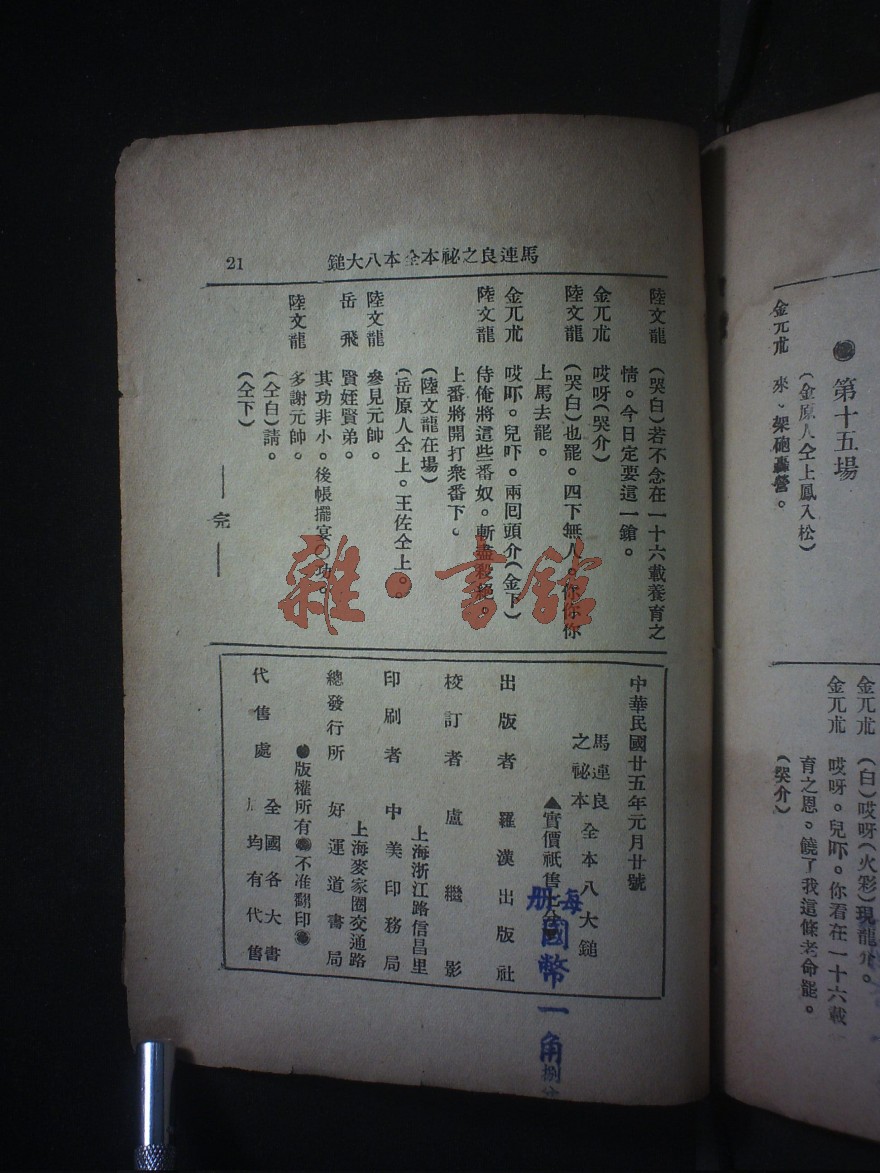 ●第十五場
(金原人仝上鳳入松)
金兀朮 來、架砲轟營。
金兀朮 (白)哎呀(火彩)現龍介。
金兀朮 哎呀。兒吓。你看在一十六載
育之恩。饒了我這條老命罷。
(哭介)
馬連良之祕本全本八大鎚
21
陸文龍 (哭白)若不念在一十六載養育之
情。今日定要這一鎗。
金兀朮 哎呀(哭介)
陸文龍 (哭白)也罷。四下無人。你你你
上馬去罷。
金兀朮 哎吓。兒吓。兩囘頭介(金下)
陸文龍 侍俺將這些番奴。斬盡殺絕。
上番將開打衆番下。
(陸文龍在場)
(岳原人仝上。王佐仝上。
陸文龍 參見元帥。
岳飛 賢姪賢弟。
其功非小。後帳擺宴〇功。
陸文龍 多謝元帥。
(仝白)請。
(仝下)
——完——
雜·書館
中華民國廿五年元月廿號
馬連良之祕本 全本八大鎚
▲實價祇售
每册國幣一角捌分
出版者 羅漢出版社
校訂者 盧繼影
上海浙江路信昌里
印刷者 中美印務局
上海麥家圈交通路
總發行所 好運道書局
●版權所有●不准翻印●
代售處 全國各大書
均有代售